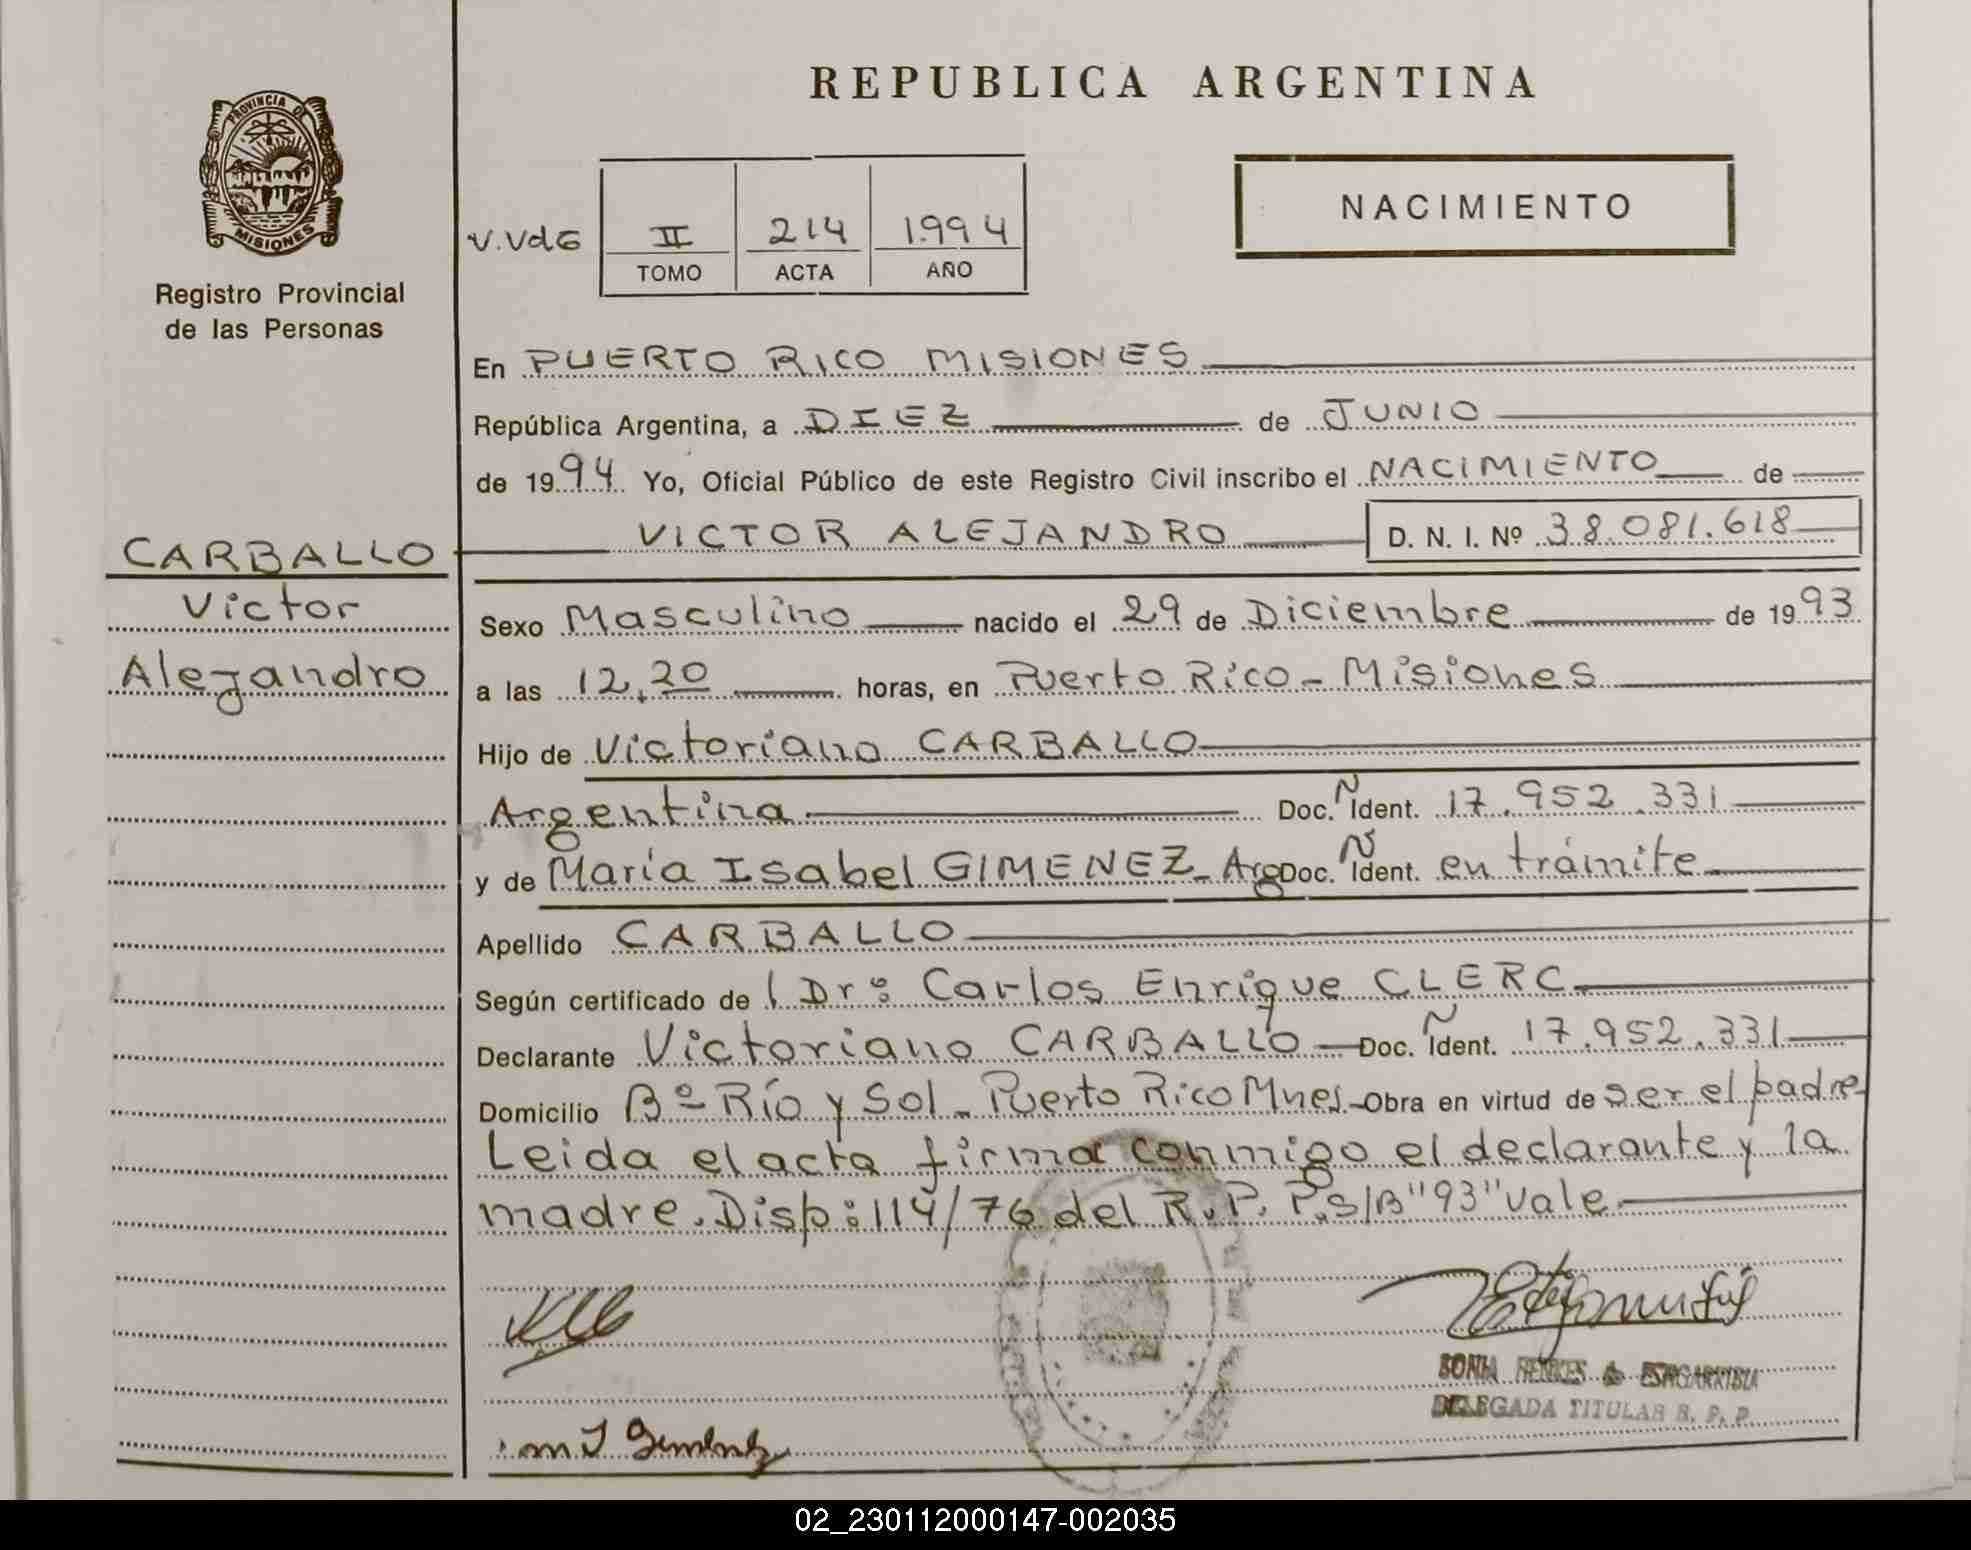 REPUBLICA ARGENTINA
PROVINCIA DE
MISIONES
Registro Provincial
de las Personas
NACIMIENTO
V.VdG
II 214 1994
TOMO ACTA AÑO
En PUERTO RICO MISIONES
República Argentina, a DIEZ de JUNIO
de 1994 Yo, Oficial Público de este Registro Civil inscribo el NACIMIENTO de
VICTOR ALEJANDRO D. N. I. Nº 38.081.618
CARBALLO
Victor
Alejandro
Sexo Masculino nacido el 29 de Diciembre de 1993
a las 12,20 horas, en Puerto Rico - Misiones
Hijo de Victoriano CARBALLO
Argentina Doc. Ñ Ident. 17.952.331
y de María Isabel GIMENEZ - Arg Doc. Ñ Ident. en trámite
Apellido CARBALLO
Según certificado de Drº Carlos Enrique CLERC
Declarante Victoriano CARBALLO Doc. Ñ Ident. 17.952.331
Domicilio Bº Río y Sol - Puerto Rico Mnes - Obra en virtud de ser el padre
Leida el acta firma conmigo el declarante y la
madre. Disp: 114/76 del R. P. P. S/B "93" Vale
SONIA
DELEGADA TITULAR R. P. P.
02_230112000147-002035